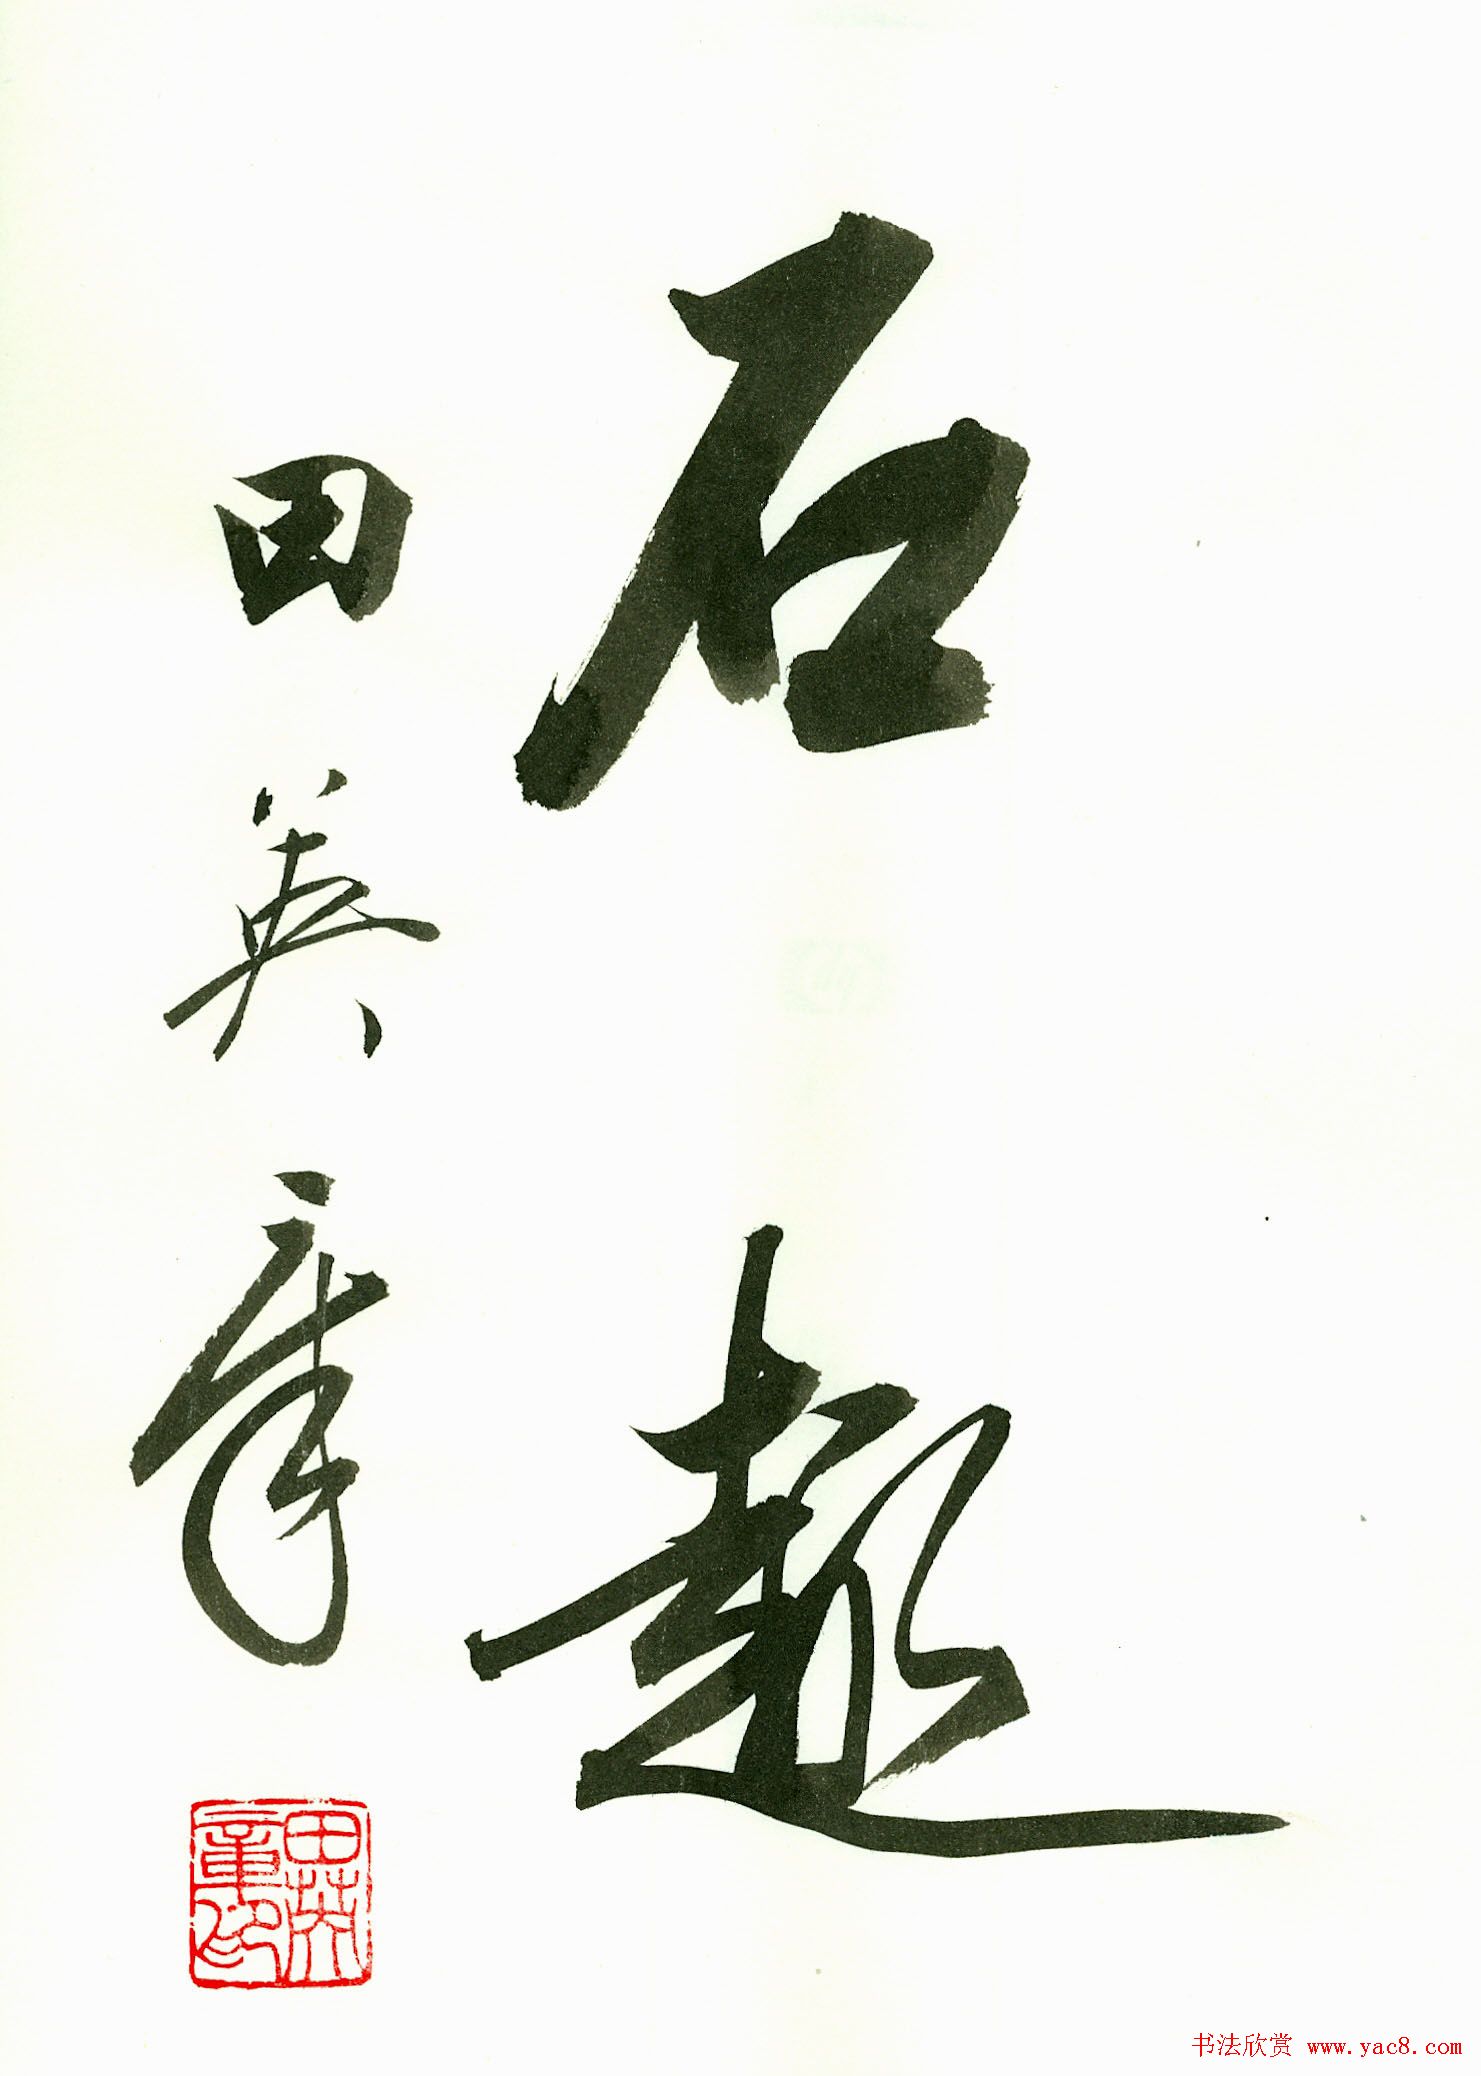 石趣
田英章
田英章印
书法欣赏 www.yac8.com